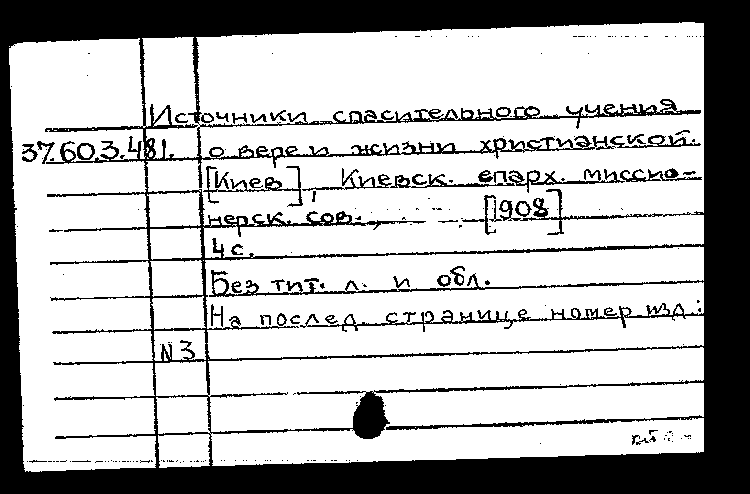 Источники спасительного учения
37.60.3.481. о вере и жизни христианской.
[Киев], Киевск. епарх. миссио-
нерск. сов., [908]
4 с.
Без тит. л. и обл.
На послед. странице номер изд:
N 3